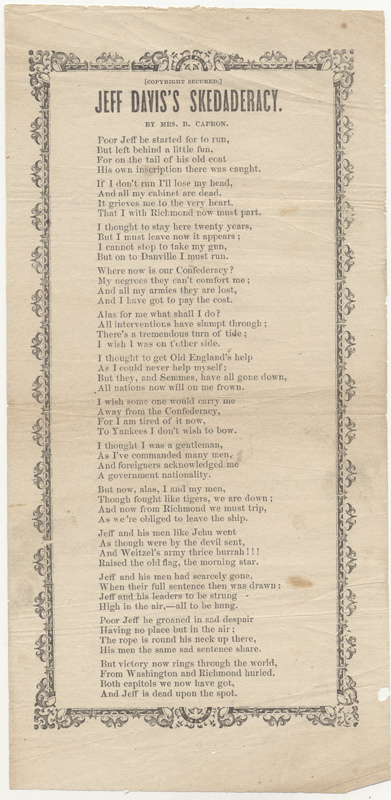 [COPYRIGHT SECURED.]
JEFF DAVIS'S SKEDADERACY.
BY MRS. B. CAPRON.
Poor Jeff he started for to run,
But left behind a little fun,
For on the tail of his old coat
His own inscription there was caught.
If I don't run I'll lose my head,
And all my cabinet are dead.
It grieves me to the very heart,
That I with Richmond now must part.
I thought to stay here twenty years,
But I must leave now it appears;
I cannot stop to take my gun,
But on to Danville I must run.
Where now is our Confederacy?
My negroes they can't comfort me;
And all my armies they are lost,
And I have got to pay the cost.
Alas for me what shall I do?
All interventions have slumpt through;
There's a tremendous turn of tide;
I wish I was on t'other side.
I thought to get Old England's help
As I could never help myself;
But they, and Semmes, have all gone down,
All nations now will on me frown.
I wish some one would carry me
Away from the Confederacy,
For I am tired of it now,
To Yankees I don't wish to bow.
I thought I was a gentleman,
As I've commanded many men,
And foreigners acknowledged me
A government nationality.
But now, alas, I and my men,
Though fought like tigers, we are down;
And now from Richmond we must trip,
As we're obliged to leave the ship.
Jeff and his men like Jehu went
As though were by the devil sent,
And Weitzel's army thrice hurrah!!!
Raised the old flag, the morning star.
Jeff and his men had scarcely gone,
When their full sentence then was drawn;
Jeff and his leaders to be strung
High in the air,—all to be hung.
Poor Jeff he groaned in sad despair
Having no place but in the air;
The rope is round his neck up there,
His men the same sad sentence share.
But victory now rings through the world,
From Washington and Richmond hurled.
Both capitols we now have got,
And Jeff is dead upon the spot.